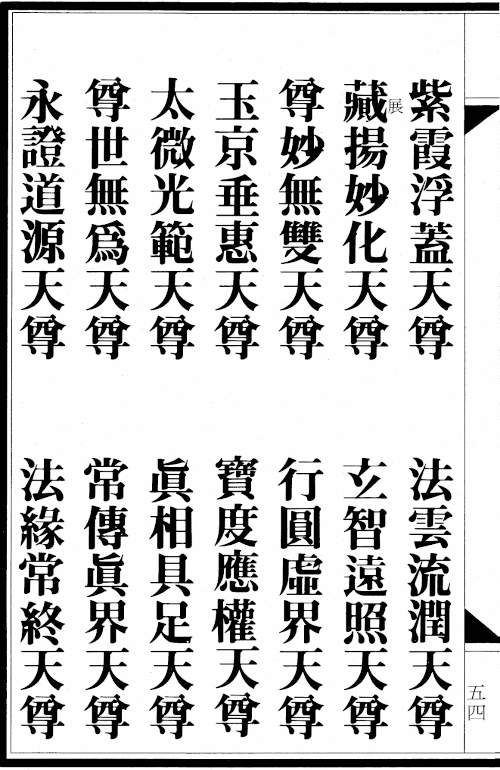 紫霞浮蓋天尊
法雲流潤天尊
藏揚妙化天尊
展
玄智遠照天尊
尊妙無雙天尊
行圓虛界天尊
玉京垂惠天尊
寶度應權天尊
太微光範天尊
眞相具足天尊
尊世無爲天尊
常傳眞界天尊
永證道源天尊
法緣常終天尊
五四